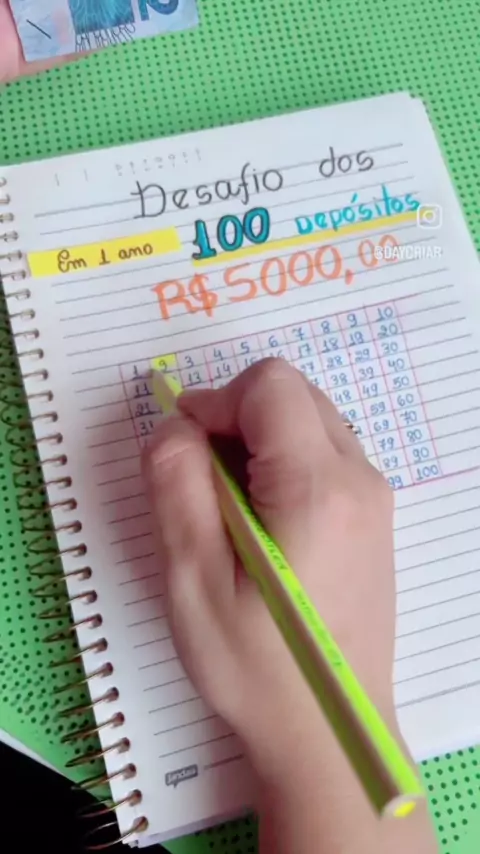 Desafio dos
100 DEPÓSITOS
Em 1 ano
R$5000,00
@DAYCRIAR
1 2 3 4 5 6 7 8 9 10
11 13 14 15 16 17 18 19 20
21 27 28 29 30
31 38 39 40
48 49 50
58 59 60
69 70
79 80
89 90
99 100
jandaia